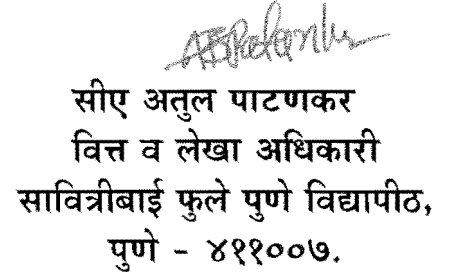 सीए अतुल पाटणकर
वित्त व लेखा अधिकारी
सावित्रीबाई फुले पुणे विद्यापीठ,
पुणे - ४११००७.